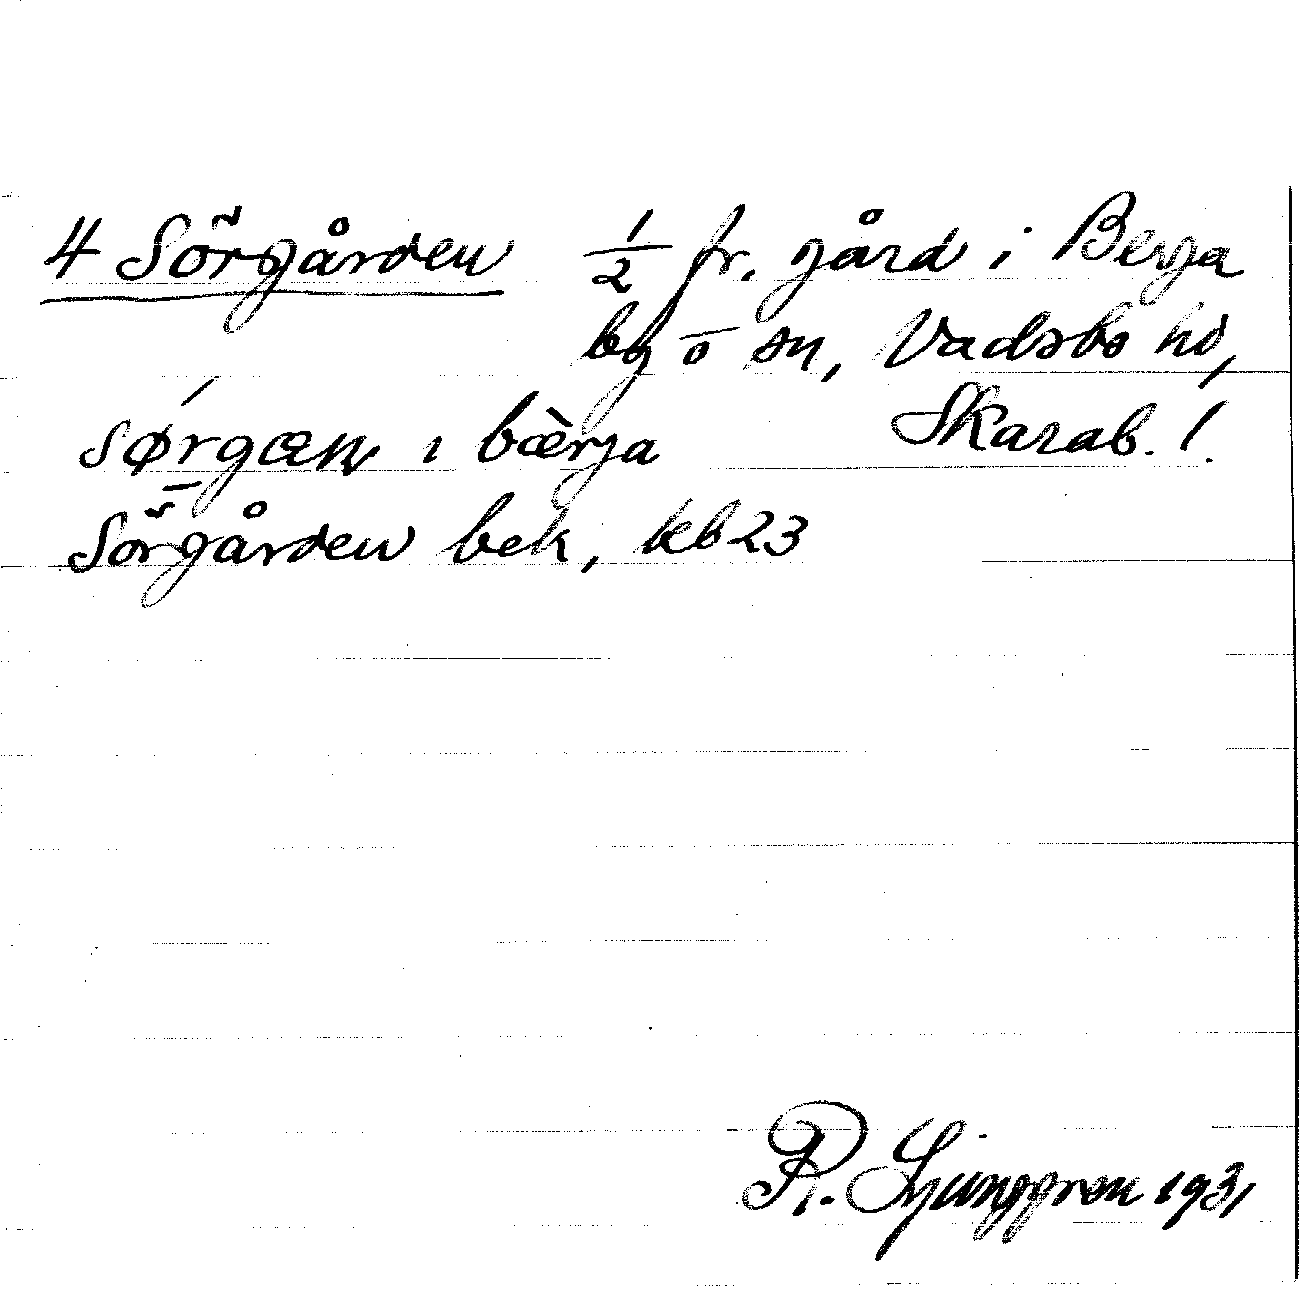 4 Sörgården 1/2 fr. gård i Berga
by o sn, Vadsbo hd,
sørgæn ı bærja Skarab. l.
Sörgården bek, kb 23
R. Ljunggren 1931